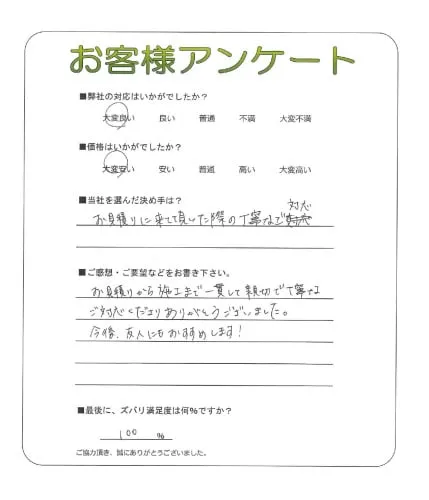 お客様アンケート
■弊社の対応はいかがでしたか？
大変良い 良い 普通 不満 大変不満
■価格はいかがでしたか？
大変安い 安い 普通 高い 大変高い
■当社を選んだ決め手は？
対応
お見積りに来て頂いた際の丁寧なご
■ご感想・ご要望などをお書き下さい。
お見積りから施工まで一貫して親切で丁寧な
ご対応くださりありがとうございました。
今後、友人にもおすすめします！
■最後に、ズバリ満足度は何%ですか？
100 %
ご協力頂き、誠にありがとうございました。